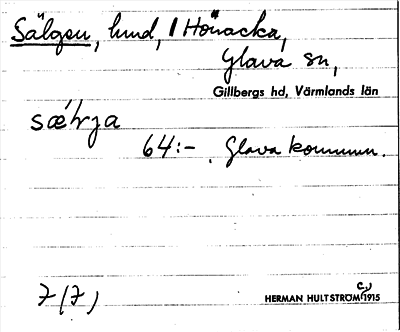 Sälgsu, hmd, 1 Hönacka,
Glava sn,
Gillbergs hd, Värmlands län
sæ'lrja
64:- Glava kommun.
7(7)
HERMAN HULTSTRÖM c) 1915